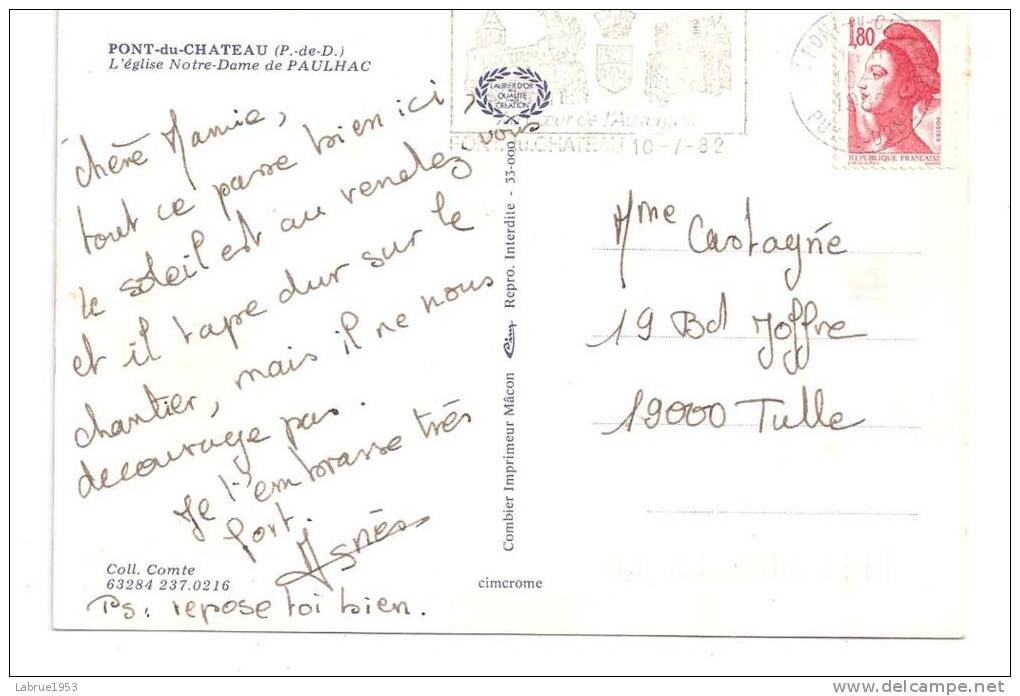 PONT-du-CHATEAU (P.-de-D.)
L'église Notre-Dame de PAULHAC
Chère Mamie,
tout ce passe bien ici,
le soleil est au rendez vous
et il tape dur sur le
chantier, mais il ne nous
decourage pas.
Je t'embrasse très
fort.
Agnès
Coll. Comte
63284 237.0216
Ps: repose toi bien.
LAURIER D'OR
DE LA
QUALITÉ
CREATION
Combier Imprimeur Mâcon Cim Repro. Interdite - 35-000
cimcrome
Au Cœur de l'Auvergne
PONT du CHATEAU 10-7-82
1,80
POSTES
REPUBLIQUE FRANÇAISE
Mme Castagné
19 Bd Joffre
19000 Tulle
Labrue1953
delcampe.net